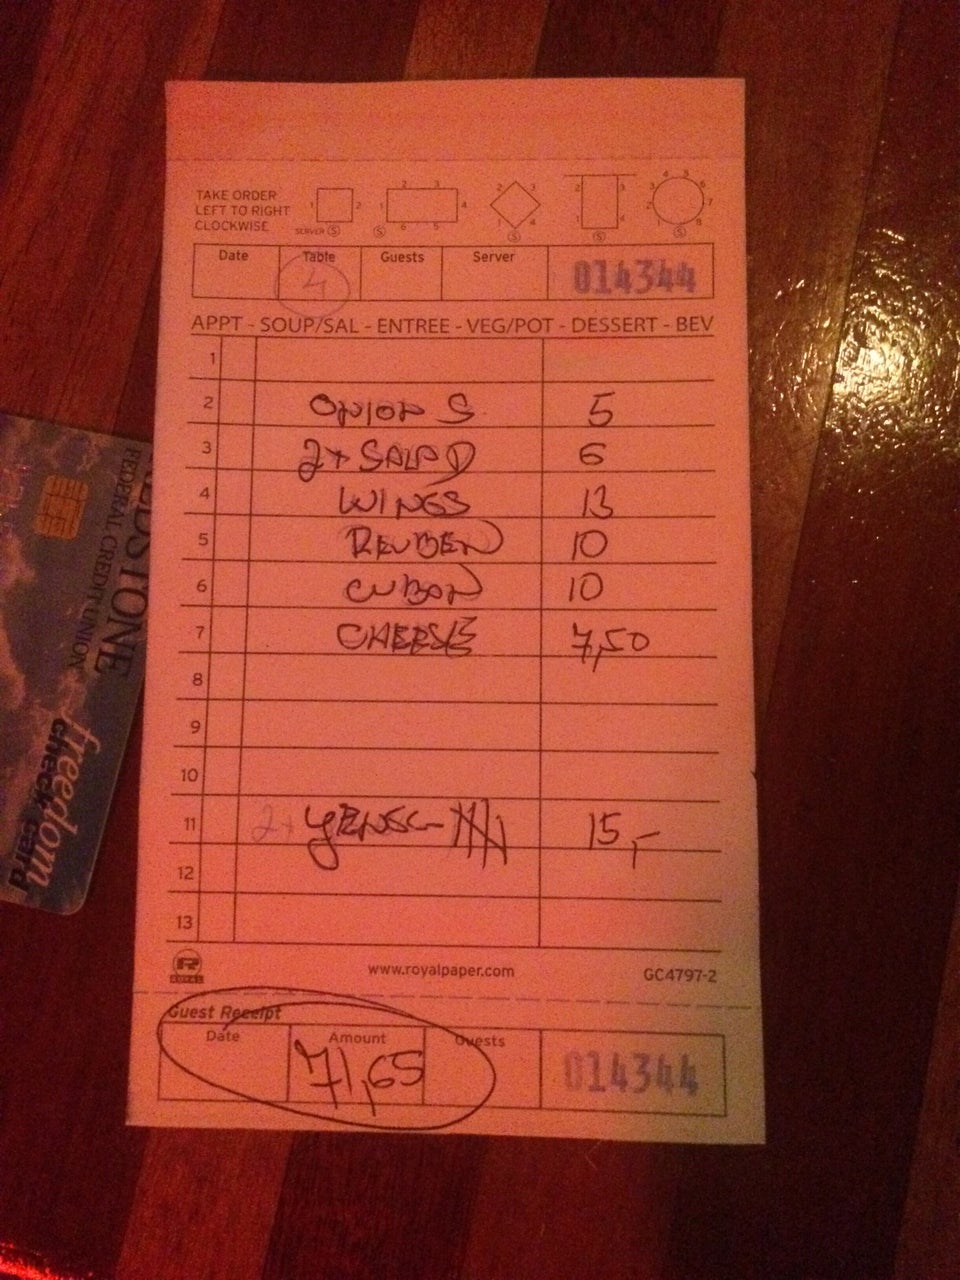 TAKE ORDER
LEFT TO RIGHT
CLOCKWISE
1 2
SERVER S
1 2 3 4 5 6 S
1 2 3 4 S
1 2 3 4 S
1 2 3 4 5 6 7 8 S
Date Table Guests Server 014344
4
APPT - SOUP/SAL - ENTREE - VEG/POT - DESSERT - BEV
1
2 ONION S 5
3 2x SALAD 6
4 WINGS 13
5 REUBEN 10
6 CUBAN 10
7 CHEESE 7,50
8
9
10
11 2x YENGL 15,-
12
13
R ROYAL www.royalpaper.com GC4797-2
Guest Receipt
Date Amount Guests 014344
71,65
REDSTONE
FEDERAL CREDIT UNION
freedom
check card